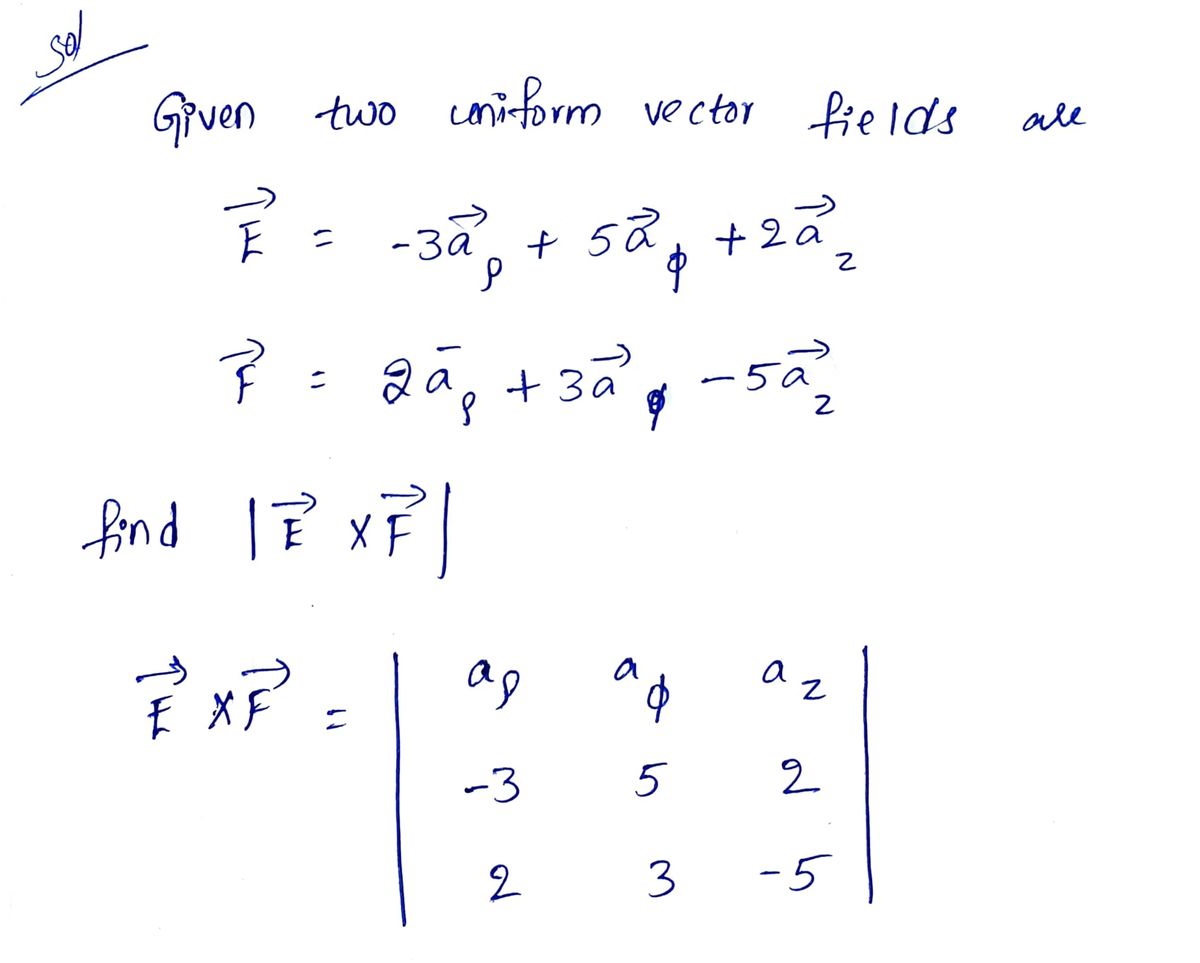 sol
Given two uniform vector fields are
E⃗ = -3a⃗ρ + 5a⃗ϕ + 2a⃗z
F⃗ = 2āρ + 3a⃗ϕ - 5a⃗z
find |E⃗ × F⃗|
E⃗ × F⃗ = | aρ aϕ az |
-3 5 2
2 3 -5